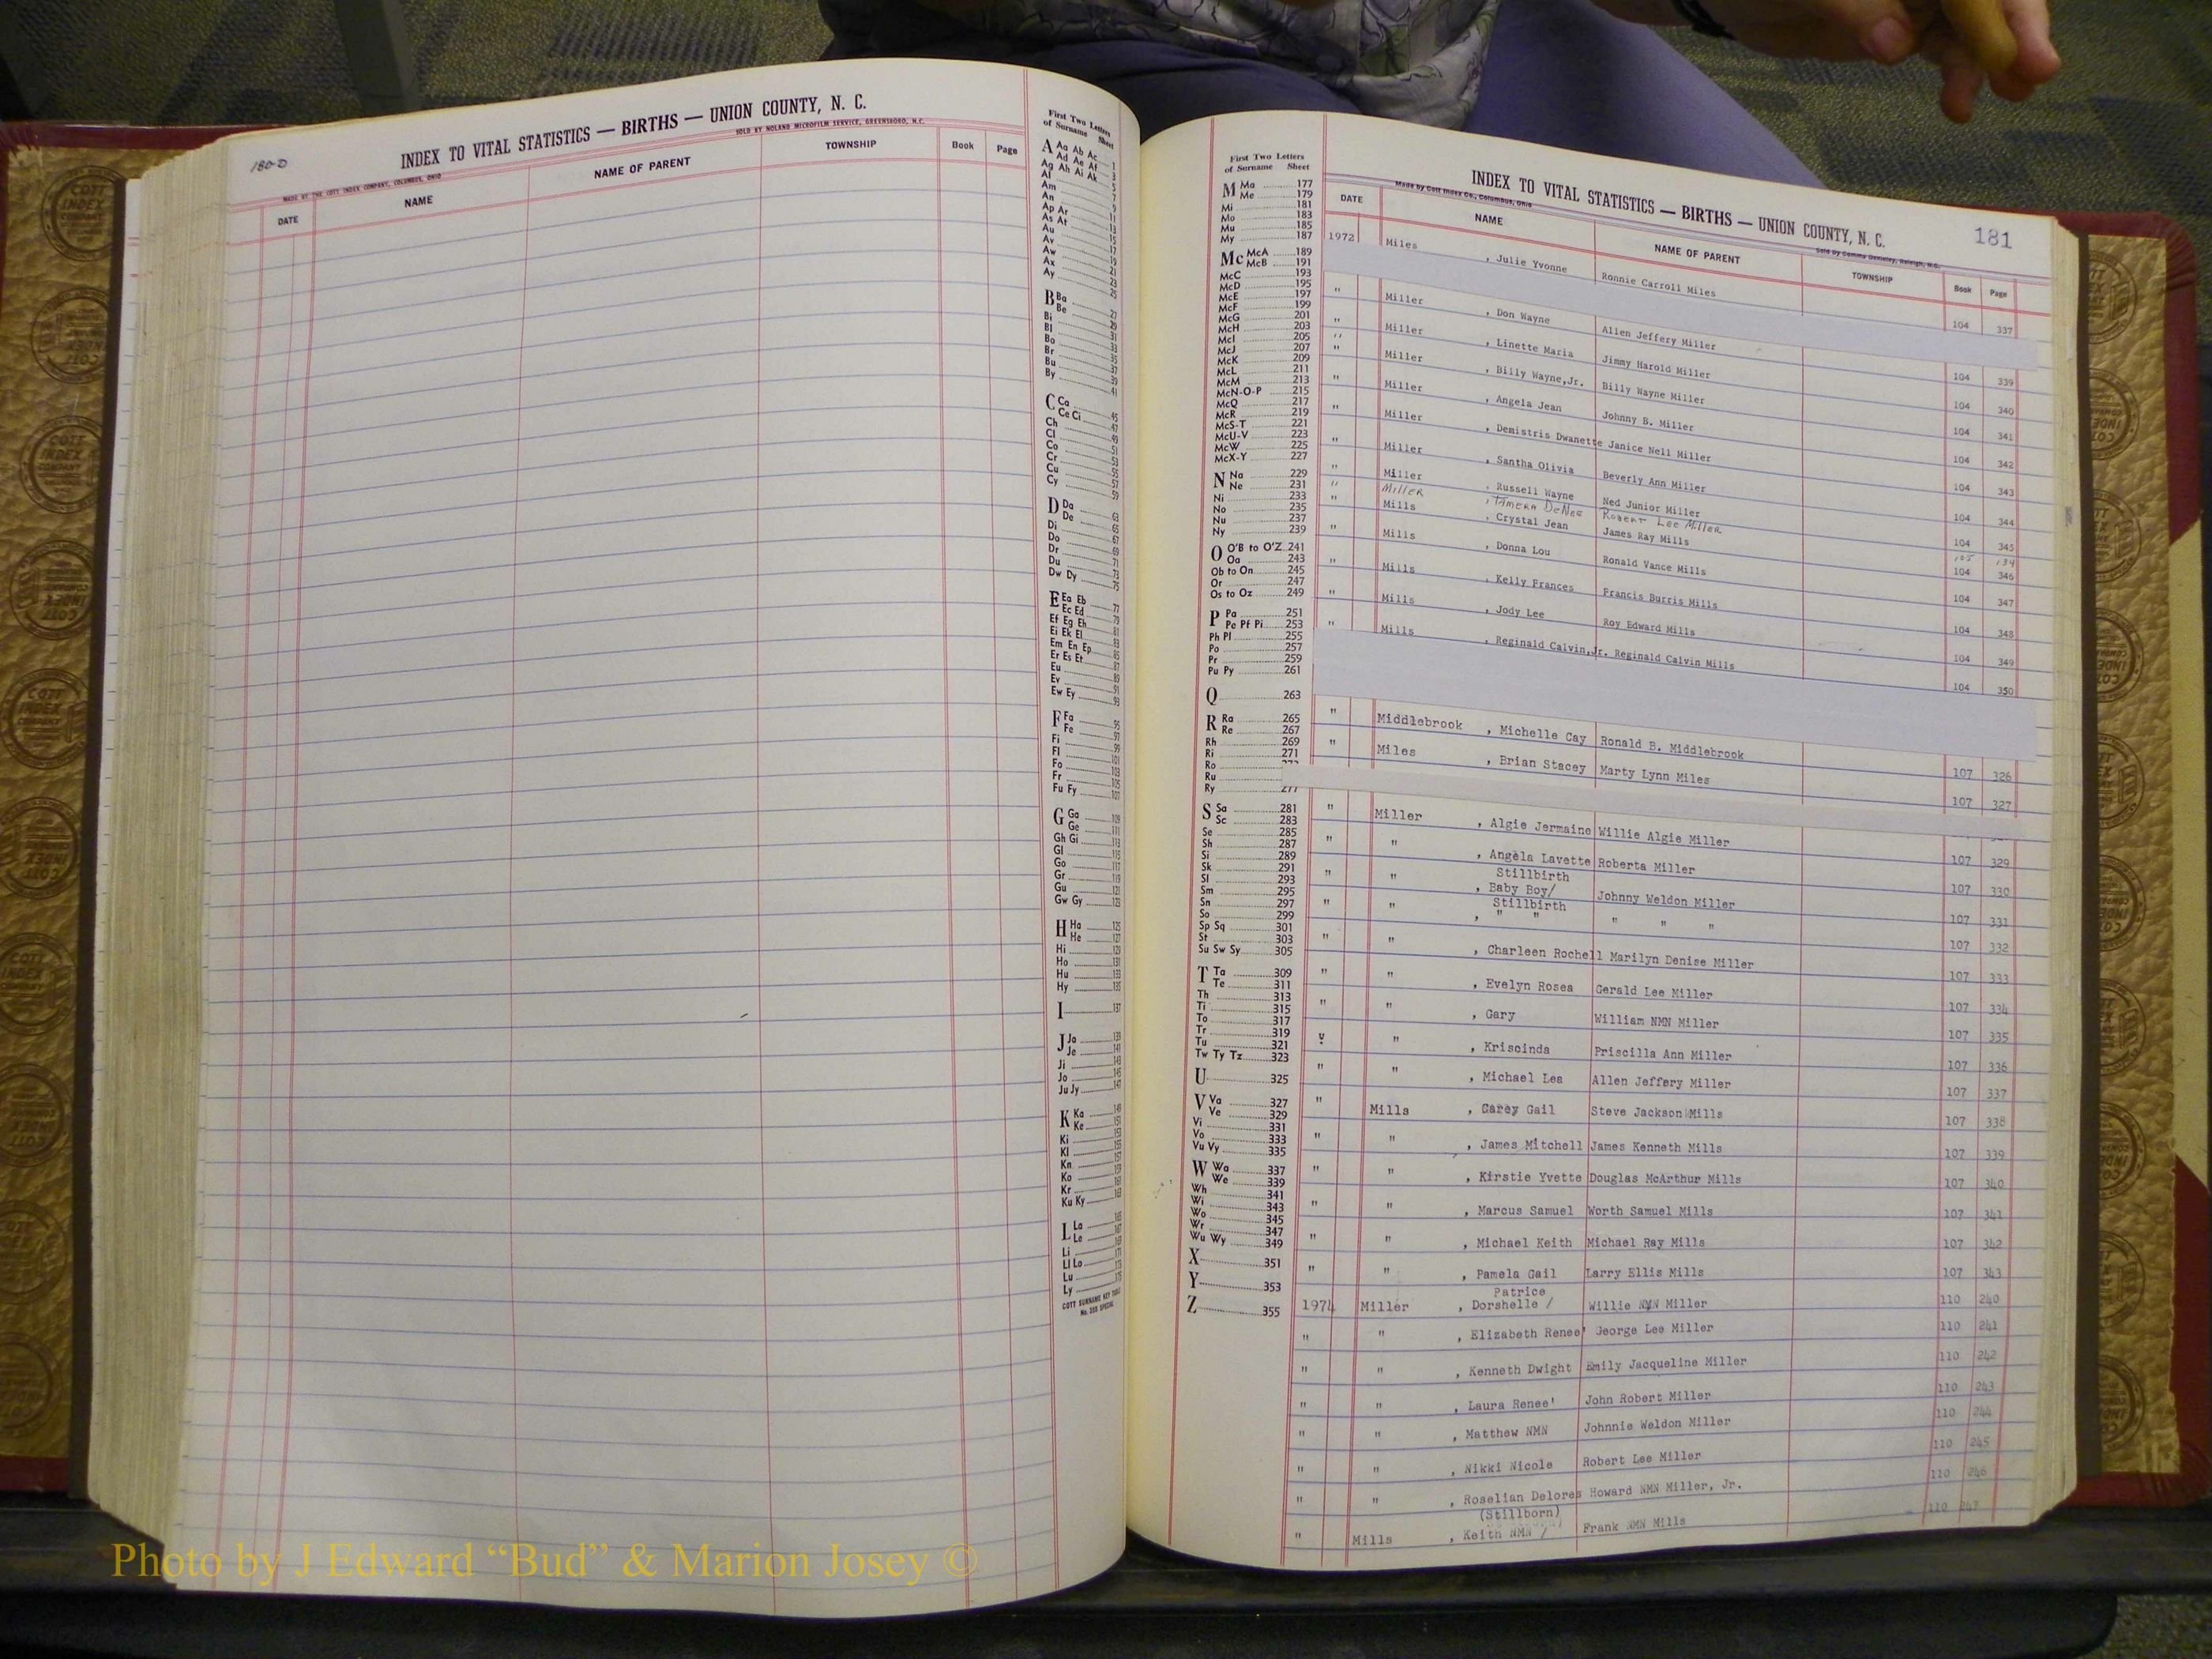 180-D
INDEX TO VITAL STATISTICS — BIRTHS — UNION COUNTY, N. C.
MADE BY THE COTT INDEX COMPANY, COLUMBUS, OHIO SOLD BY NOLAND MICROFILM SERVICE, GREENSBORO, N.C.
DATE NAME NAME OF PARENT TOWNSHIP Book Page
First Two Letters
of Surname Sheet
A Aa Ab Ac 1
Ad Ae Af 3
Ag Ah Ai Ak 5
Al
Am
An
Ap Ar
As At
Au
Av
Aw
Ax
Ay
B Ba 27
Be 29
Bi 31
Bl 33
Bo 35
Br 37
Bu 39
By 41
C Ca 45
Ce Ci 47
Ch 49
Cl 51
Co 53
Cr 55
Cu 57
Cy 59
D Da 63
De 65
Di 67
Do 69
Dr 71
Du 73
Dw Dy 75
E Ea Eb 77
Ec Ed 79
Ef Eg Eh 81
Ei Ek El 83
Em En Ep 85
Er Es Et 87
Eu 89
Ev 91
Ew Ey 93
F Fa 95
Fe 97
Fi 99
Fl 101
Fo 103
Fr 105
Fu Fy 107
G Ga 109
Ge 111
Gh Gi 113
Gl 115
Go 117
Gr 119
Gu 121
Gw Gy 123
H Ha 125
He 127
Hi 129
Ho 131
Hu 133
Hy 135
I 137
J Ja 139
Je 141
Ji 143
Jo 145
Ju Jy 147
K Ka 149
Ke 151
Ki 153
Kl 155
Kn 157
Ko 159
Kr 161
Ku Ky 163
L La 165
Le
Li 171
Ll Lo 173
Lu 175
Ly
COTT SURNAME KEY TABLE
First Two Letters
of Surname Sheet
M Ma 177
Me 179
Mi 181
Mo 183
Mu 185
My 187
Mc McA 189
McB 191
McC 193
McD 195
McE 197
McF 199
McG 201
McH 203
McI 205
McJ 207
McK 209
McL 211
McM 213
McN-O-P 215
McQ 217
McR 219
McS-T 221
McU-V 223
McW 225
McX-Y 227
N Na 229
Ne 231
Ni 233
No 235
Nu 237
Ny 239
O O'B to O'Z 241
Oa 243
Ob to On 245
Or 247
Os to Oz 249
P Pa 251
Pe Pf Pi 253
Ph Pl 255
Po 257
Pr 259
Pu Py 261
Q 263
R Ra 265
Re 267
Rh 269
Ri 271
Ro
Ru
Ry 277
S Sa 281
Sc 283
Se 285
Sh 287
Si 289
Sk 291
Sl 293
Sm 295
Sn 297
So 299
Sp Sq 301
St 303
Su Sw Sy 305
T Ta 309
Te 311
Th 313
Ti 315
To 317
Tr 319
Tu 321
Tw Ty Tz 323
U 325
V Va 327
Ve 329
Vi 331
Vo 333
Vu Vy 335
W Wa 337
We 339
Wh 341
Wi 343
Wo 345
Wr 347
Wu Wy 349
X 351
Y 353
Z 355
INDEX TO VITAL STATISTICS — BIRTHS — UNION COUNTY, N. C. 181
Made by Cott Index Co., Columbus, Ohio
DATE NAME NAME OF PARENT TOWNSHIP Book Page
1972 Miles , Julie Yvonne Ronnie Carroll Miles 104 337
" Miller , Don Wayne Allen Jeffery Miller 104 339
" Miller , Linette Maria Jimmy Harold Miller 104 340
" Miller , Billy Wayne,Jr. Billy Wayne Miller 104 341
" Miller , Angela Jean Johnny B. Miller 104 342
" Miller , Demistris Dwanette Janice Nell Miller 104 343
" Miller , Santha Olivia Beverly Ann Miller 104 344
" Miller , Russell Wayne Ned Junior Miller 104 345
" Miller , Tamera DeNee Robert Lee Miller 105 134
" Mills , Crystal Jean James Ray Mills 104 346
" Mills , Donna Lou Ronald Vance Mills 104 347
" Mills , Kelly Frances Francis Burris Mills 104 348
" Mills , Jody Lee Roy Edward Mills 104 349
" Mills , Reginald Calvin,Jr. Reginald Calvin Mills 104 350
" Middlebrook , Michelle Cay Ronald B. Middlebrook 107 326
" Miles , Brian Stacey Marty Lynn Miles 107 327
" Miller , Algie Jermaine Willie Algie Miller 107 329
" " , Angela Lavette Roberta Miller 107 330
Stillbirth
" " , Baby Boy/ Johnny Weldon Miller 107 331
Stillbirth
" " , " " " " " 107 332
" " , Charleen Rochell Marilyn Denise Miller 107 333
" " , Evelyn Rosea Gerald Lee Miller 107 334
" " , Gary William NMN Miller 107 335
" " , Kriscinda Priscilla Ann Miller 107 336
" " , Michael Lea Allen Jeffery Miller 107 337
" Mills , Carey Gail Steve Jackson Mills 107 338
" " , James Mitchell James Kenneth Mills 107 339
" " , Kirstie Yvette Douglas McArthur Mills 107 340
" " , Marcus Samuel Worth Samuel Mills 107 341
" " , Michael Keith Michael Ray Mills 107 342
" " , Pamela Gail Larry Ellis Mills 107 343
Patrice
1974 Miller , Dorshelle / Willie NMN Miller 110 240
" " , Elizabeth Renee' George Lee Miller 110 241
" " , Kenneth Dwight Emily Jacqueline Miller 110 242
" " , Laura Renee' John Robert Miller 110 243
" " , Matthew NMN Johnnie Weldon Miller 110 244
" " , Nikki Nicole Robert Lee Miller 110 245
" " , Roselian Delores Howard NMN Miller, Jr. 110 246
(Stillborn)
" Mills , Keith NMN / Frank NMN Mills 110 247
Photo by J Edward “Bud” & Marion Josey ©